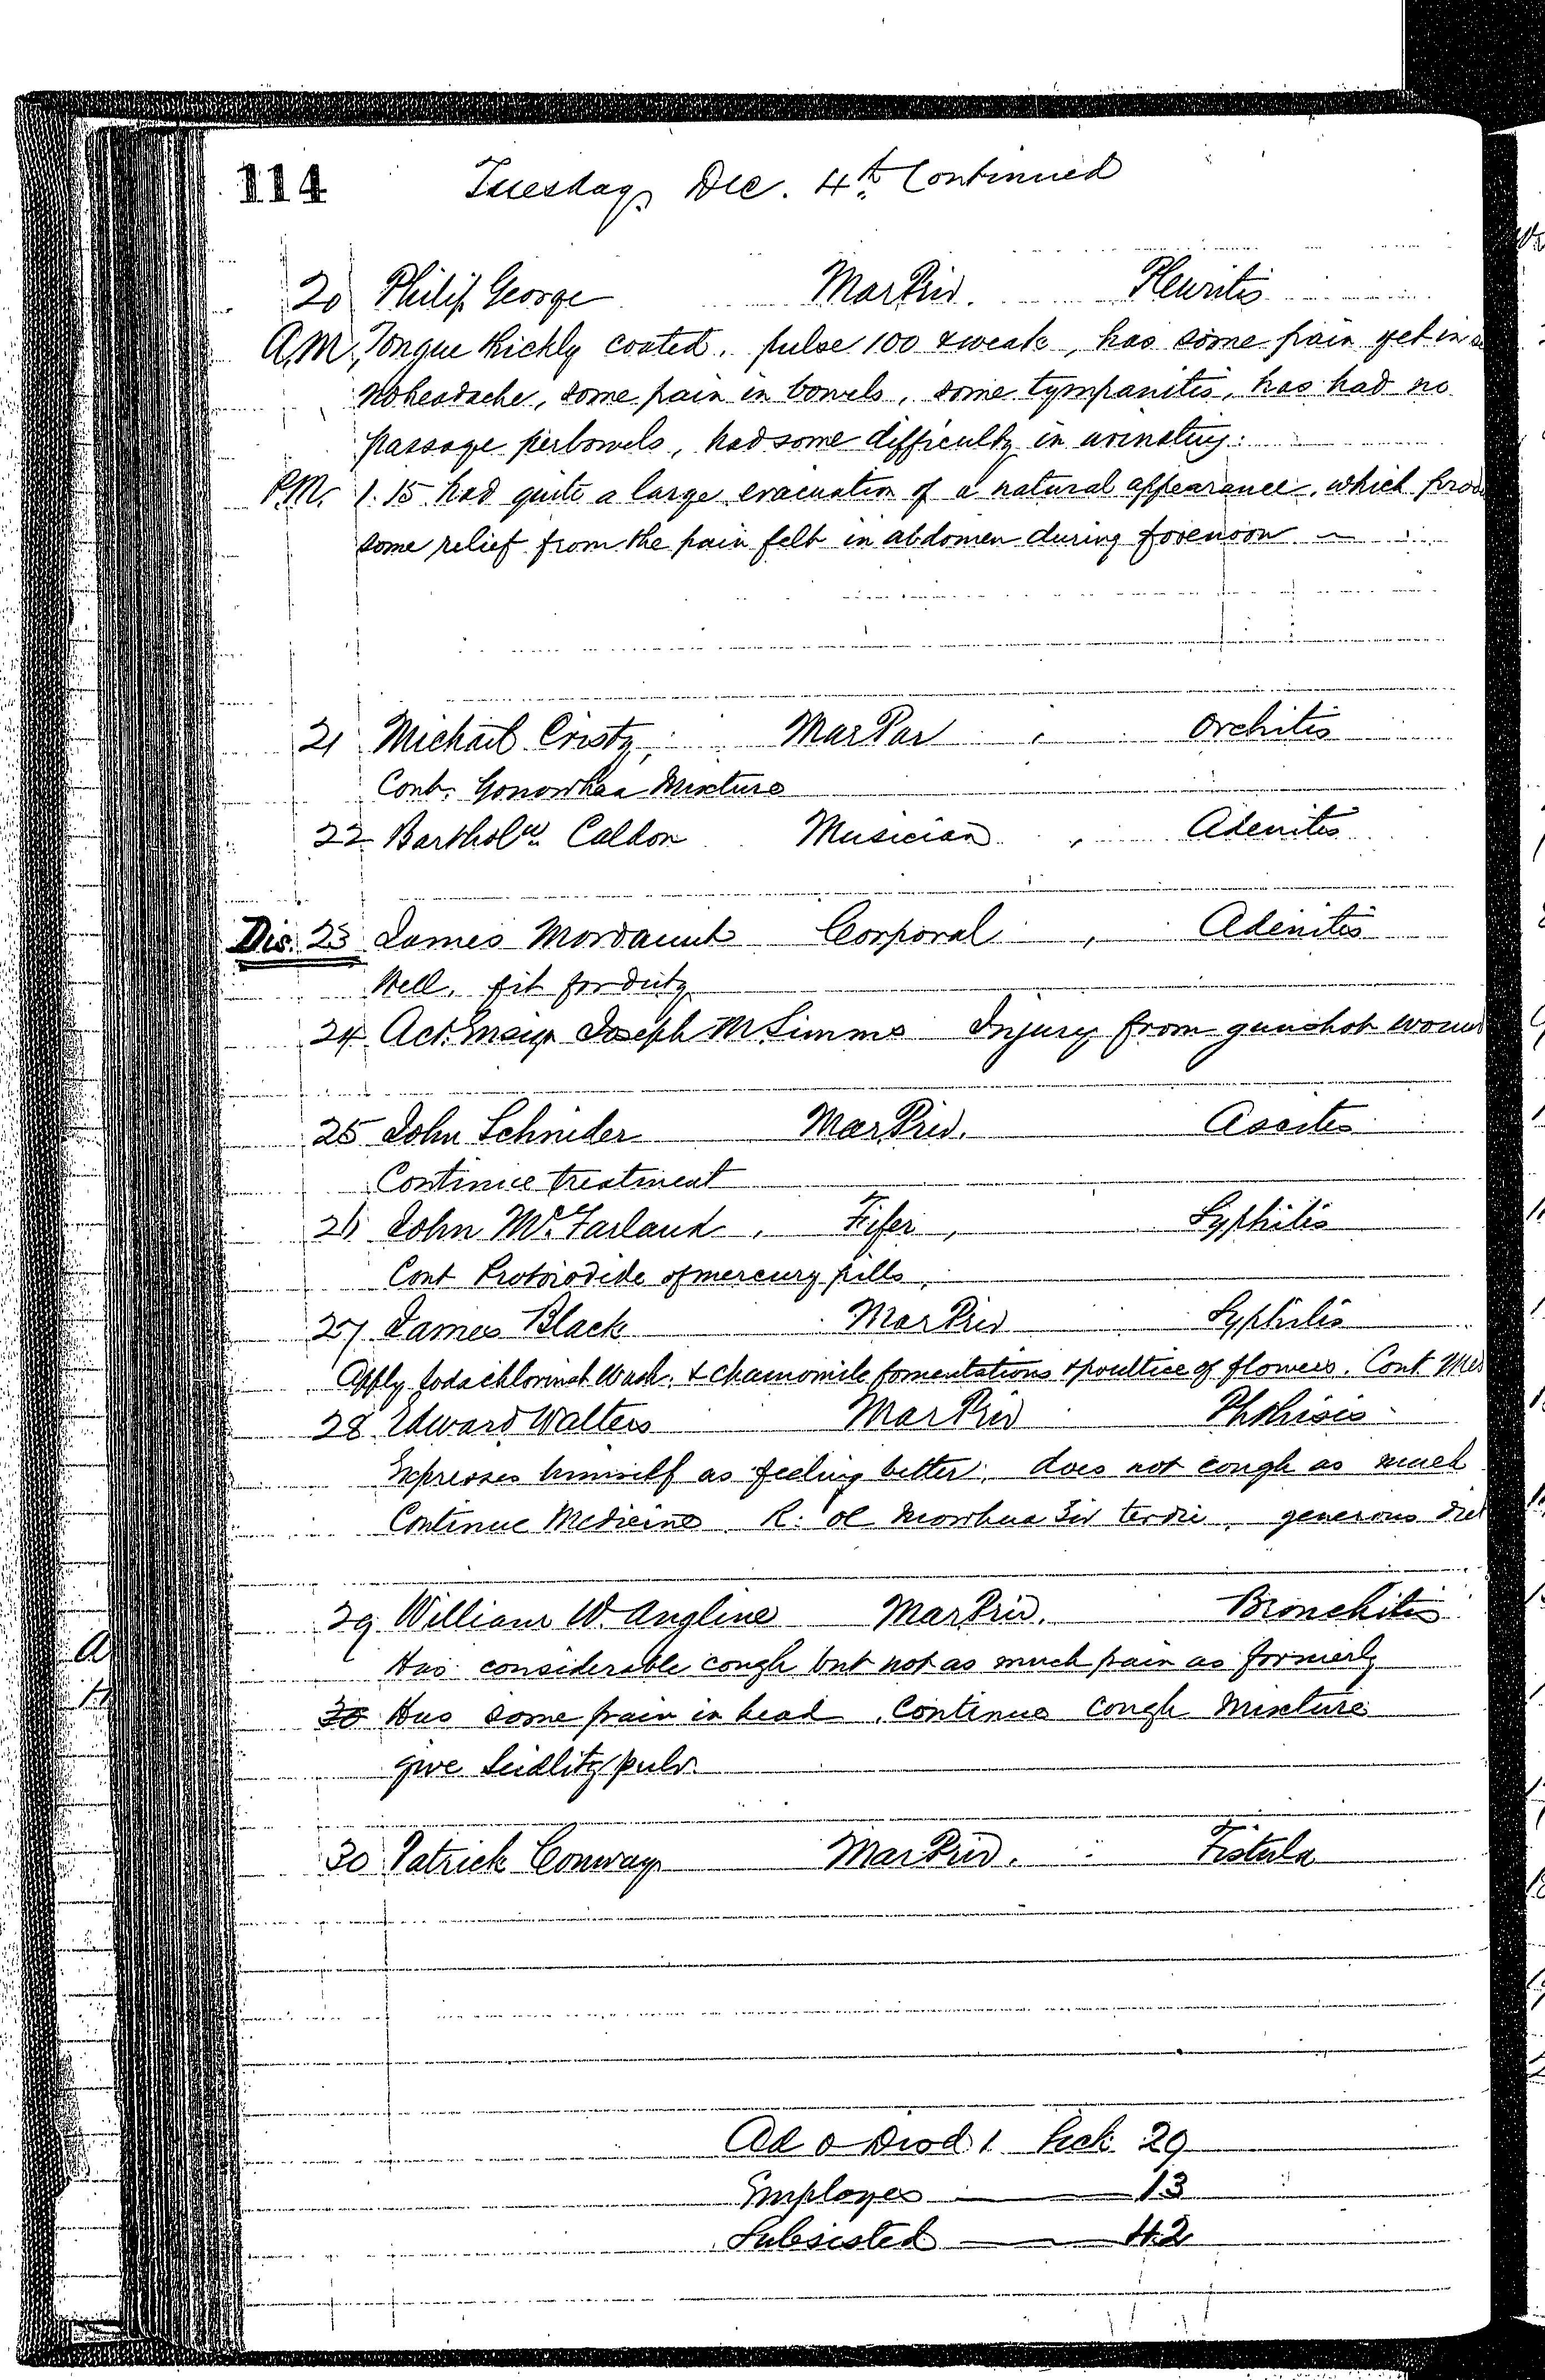 114 Tuesday, Dec. 4th Continued
20 Philip George Mar Priv. Pleuritis
A.M. Tongue thickly coated, pulse 100 & weak, has some pain yet in
no headache, some pain in bowels, some tympanitis, has had no
passage per bowels, had some difficulty in urinating.
P.M. 1.15 had quite a large evacuation of a natural appearance, which
some relief from the pain felt in abdomen during forenoon
21 Michael Cristy, Mar Par Orchitis
Cont. Gonorrhea Mixture
22 Barthol'w Caldon Musician Adenitis
Dis. 23 James Mordaunt Corporal, Adenitis
Well, fit for duty
24 Act. Ensign Joseph M. Simms Injury from gunshot woun
25 John Schnider Mar Priv. Ascites
Continue treatment
26 John McFarland, Fifer, Syphilis
Cont Protoiodide of mercury pills,
27 James Black Mar Priv Syphilis
Apply Soda chlorinat Wash, & chamomile fomentations & poultice of flowers. Cont. Med
28 Edward Walters Mar Priv Phthisis
Expresses himself as feeling better, does not cough as much
Continue Medicine R: ol Morrhua ter die, generous diet
29 William W. Angline Mar Priv. Bronchitis
Has considerable cough but not as much pain as formerly
30 Has some pain in head, Continue Cough Mixture
give Seidlitz pulv.
30 Patrick Conway Mar Priv. Fistula
Ad 0 Disd 1 Sick 29
Employes 13
Subsisted 42